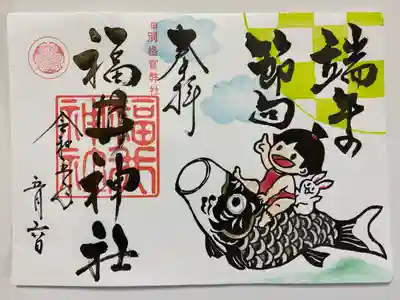 端午の
節句
奉拝
旧別格官幣社
福井神社
福井
神社
令和五年
五月六日